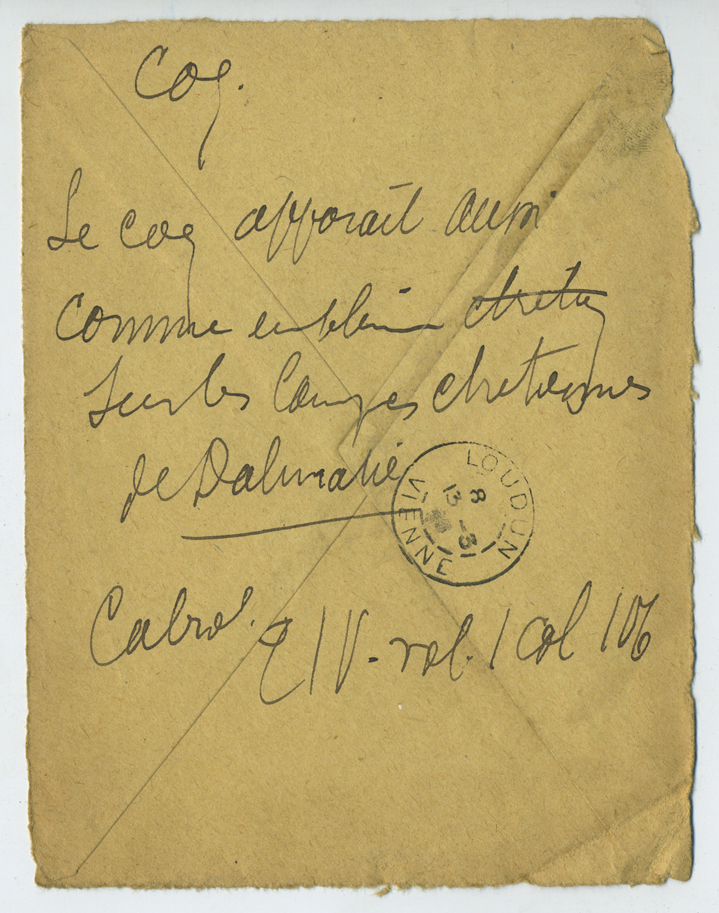 Coq.
Le coq apparait aussi
comme emblème chretie
sur les lampes chretiennes
de Dalmatie
LOUDUN
8
13 -3
VIENNE
Cabrol. T IV - vol. 1 col 106